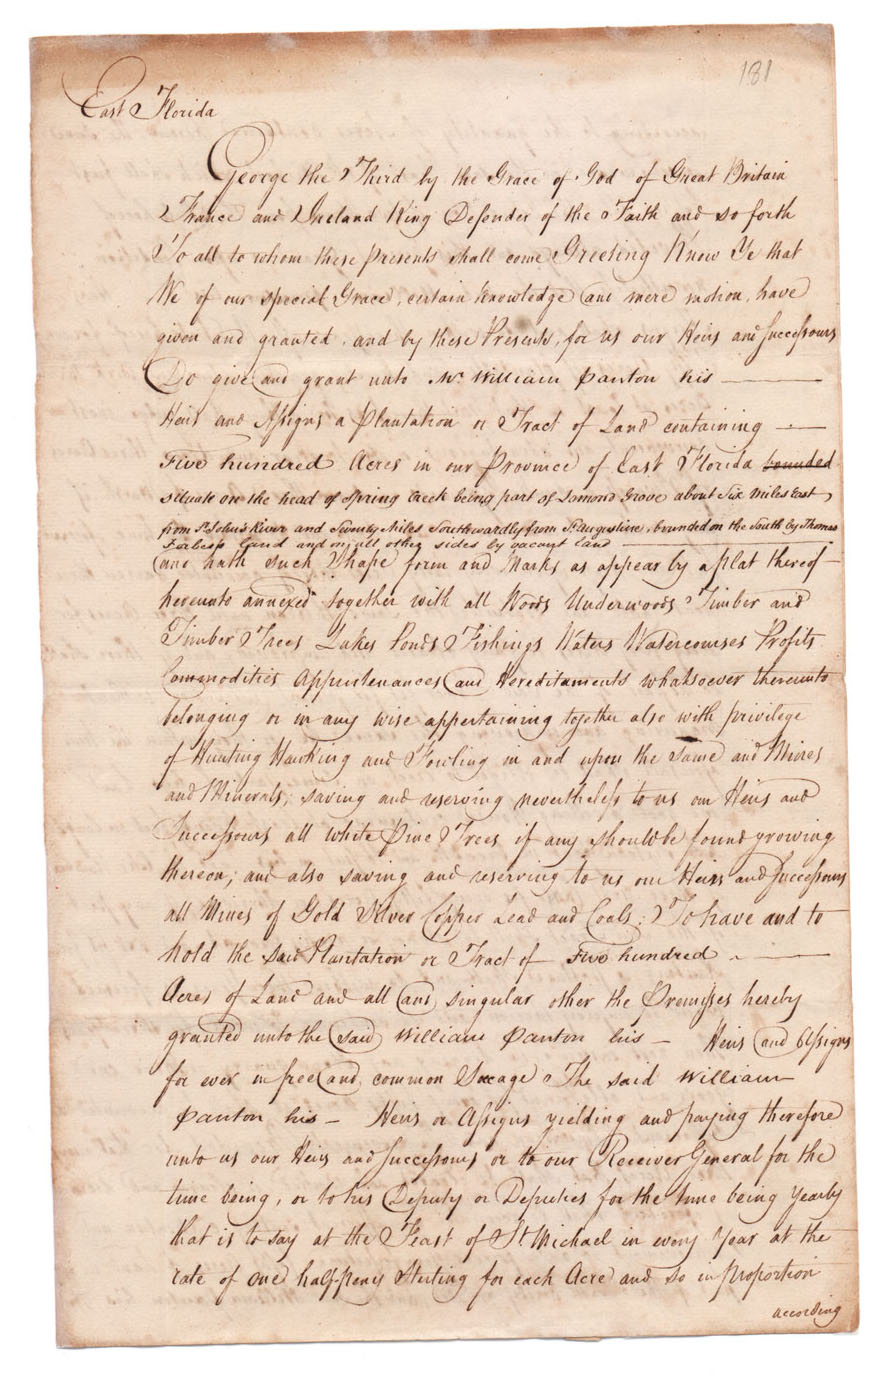 181
East Florida
George the Third by the Grace of God of Great Britain
France and Ireland King Defender of the Faith and so forth
To all to whom these presents shall come Greeting Know Ye that
We of our special Grace, certain knowledge and mere motion, have
given and granted, and by these Presents, for us our Heirs and Successours
Do give and grant unto Mr. William Panton his
Heirs and Assigns a Plantation or Tract of Land containing
Five hundred Acres in our Province of East Florida bounded
situate on the head of Spring Creek being part of Lamond Grove about Six Miles East
from St. John's River and Twenty Miles Southwardly from St. Augustine, bounded on the South by Thomas
Forbess Land and on all other sides by vacant land
and hath such Shape form and Marks as appear by a plat thereof
hereunto annexed together with all Woods Underwoods Timber and
Timber Trees Lakes Ponds Fishings Waters Watercourses Profits
Commodities Appurtenances and Hereditaments whatsoever thereunto
belonging or in any wise appertaining together also with privilege
of Hunting Hawking and Fowling in and upon the same and Mines
and Minerals; saving and reserving nevertheless to us our Heirs and
Successours all white Pine Trees if any should be found growing
thereon; and also saving and reserving to us our Heirs and Successours
all Mines of Gold Silver Copper Lead and Coals: To have and to
hold the said Plantation or Tract of Five hundred
Acres of Land and all and singular other the Premisses hereby
granted unto the said William Panton his Heirs and Assigns
for ever in free and common Socage The said William
Panton his Heirs or Assigns yielding and paying therefore
unto us our Heirs and Successours or to our Receiver General for the
time being, or to his Deputy or Deputies for the time being yearly
that is to say at the Feast of St. Michael in every Year at the
rate of one halfpeny Sterling for each Acre and so in proportion
according